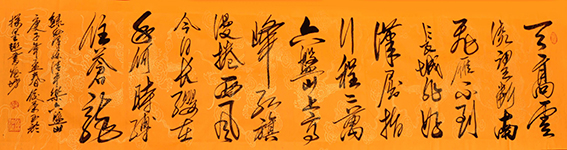 天高雲
淡望斷南
飛雁不到
長城非好
漢屈指
行程二萬
六盤山上高
峰紅旗
漫捲西風
今日長纓在
手何時縛
住蒼龍
錄毛澤東清平樂六盤山
庚子年